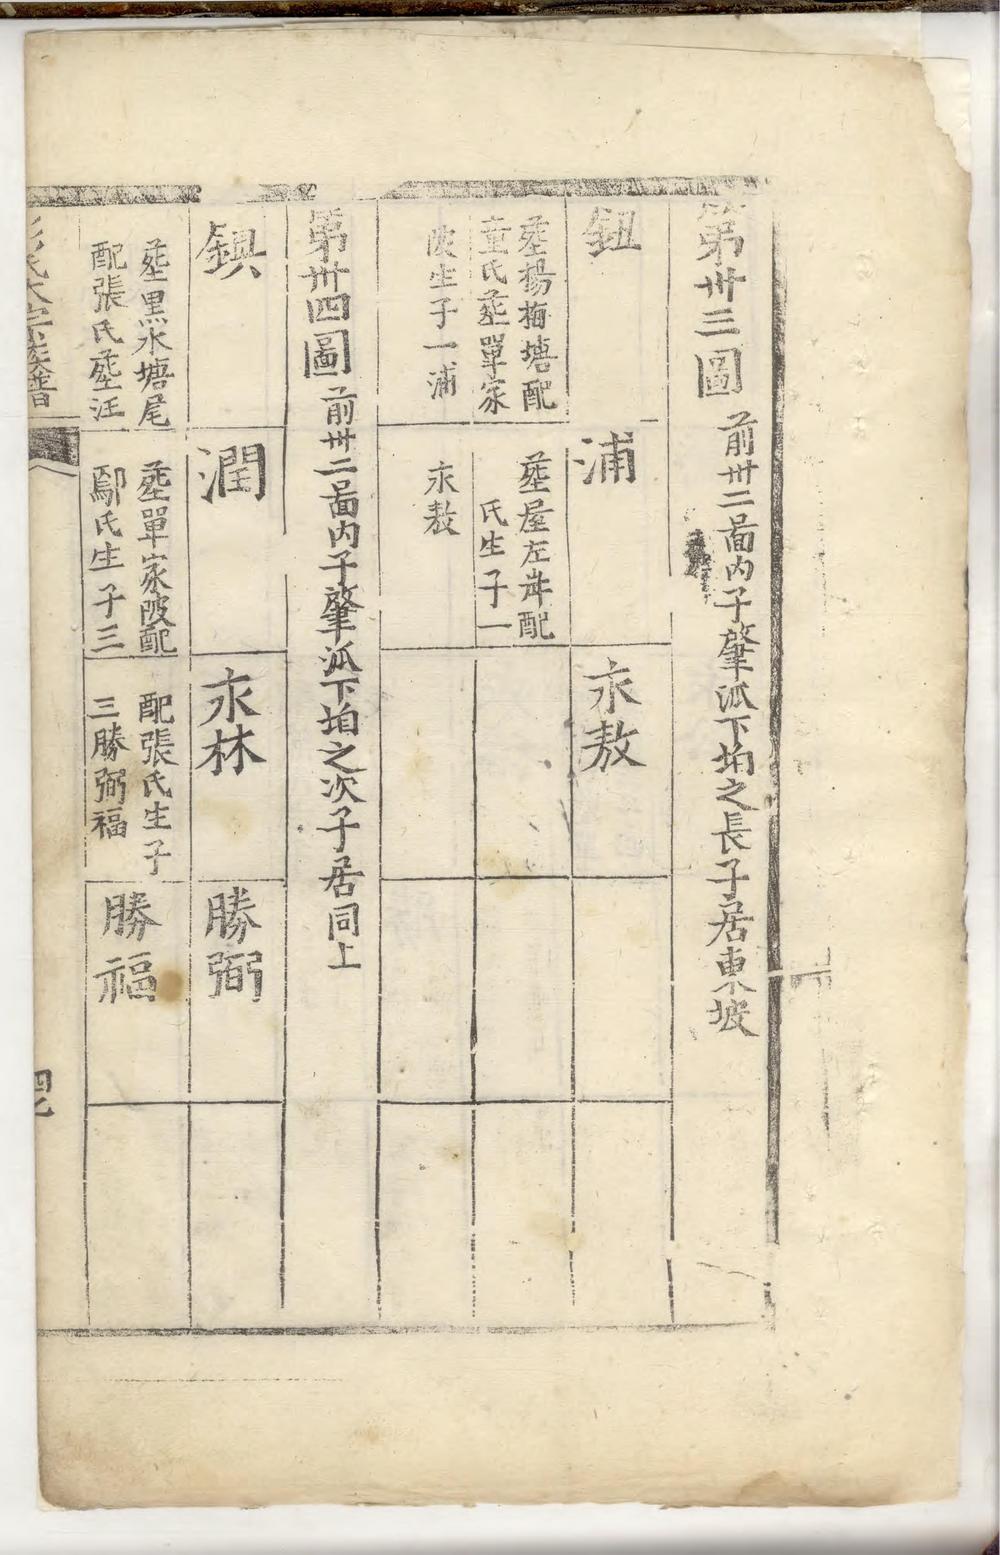 第卅三圖 前卅二啚内子肇派下垍之長子居東坡
鈕
葬楊梅塘配
童氏葬單家
陂生子一浦
浦
葬屋左畔配
氏生子一
永敖
永敖
第卅四圖 前卅二啚内子肇派下垍之次子居同上
鎮
葬黑水塘尾
配張氏葬汪
潤
葬單家陂配
鄢氏生子三
永林
配張氏生子
三勝弼福
勝弼
勝福
氏大宗族譜
四七